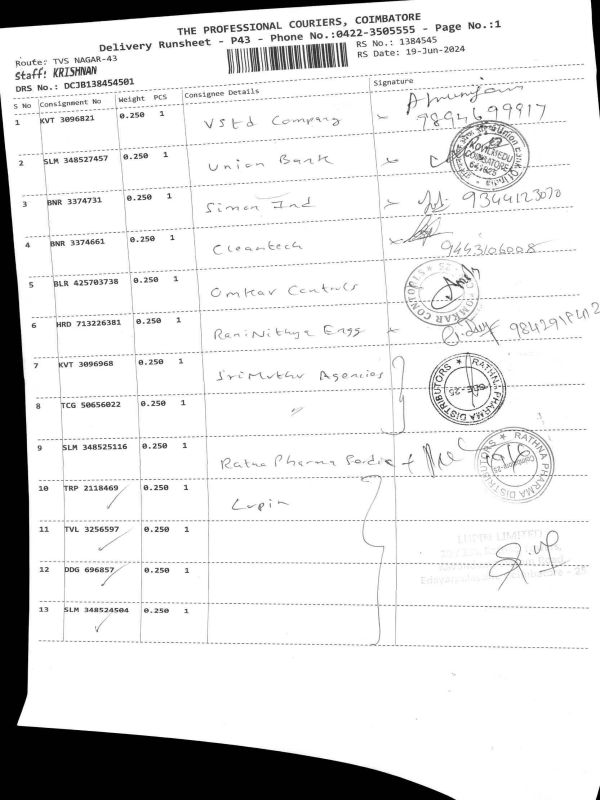 THE PROFESSIONAL COURIERS, COIMBATORE
Delivery Runsheet - P43 - Phone No.:0422-3505555 - Page No.:1
Route: TVS NAGAR-43
RS No.: 1384545
Staff: KRISHNAN
RS Date: 19-Jun-2024
DRS No.: DCJB138454501
S No Consignment No Weight PCS Consignee Details Signature
1 KVT 3096821 0.250 1 VSted Company
9894699917
2 SLM 348527457 0.250 1 Union Bank
KOVILMEDU
COIMBATORE
641025
3 BNR 3374731 0.250 1 Simon Ind 9344123070
4 BNR 3374661 0.250 1 Cleantech 9443106008
5 BLR 425703738 0.250 1 Omkar Controls
6 HRD 713226381 0.250 1 RaniNithya Engg
7 KVT 3096968 0.250 1 SriMuthu Agencies
RATHNA PHARMA DISTRIBUTORS
CBE-25
8 TCG 50656022 0.250 1 〃
9 SLM 348525116 0.250 1 Ratna Pharma
RATHNA PHARMA DISTRIBUTORS
10 TRP 2118469 0.250 1 Lupin
11 TVL 3256597 0.250 1
LUPIN LIMITED
12 DDG 696857 0.250 1
13 SLM 348524504 0.250 1